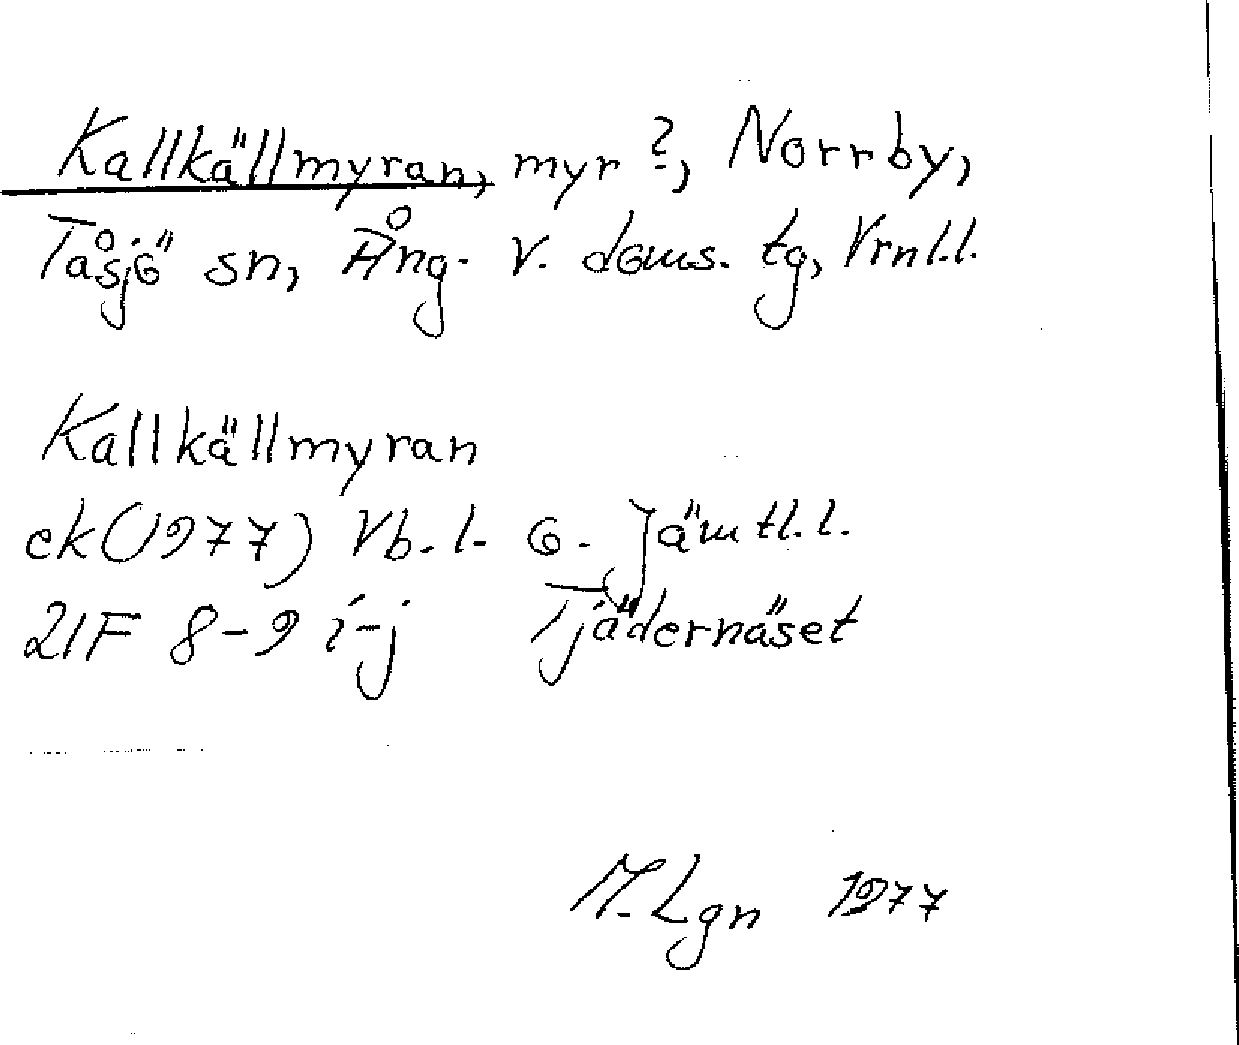 Kallkällmyran, myr?, Norrby,
Tåsjö sn, Ång. v. doms. tg, Vrnl.l.
Kallkällmyran
ek(1977) Vb. l. o. Jämtl.l.
21F 8-9 i-j Tjädernäset
M. Lgn 1977